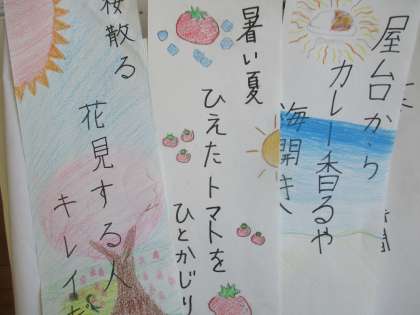 屋台から
カレー香るや
海開き
暑い夏
ひえたトマトを
ひとかじり
桜散る
花見する人
キレイだ